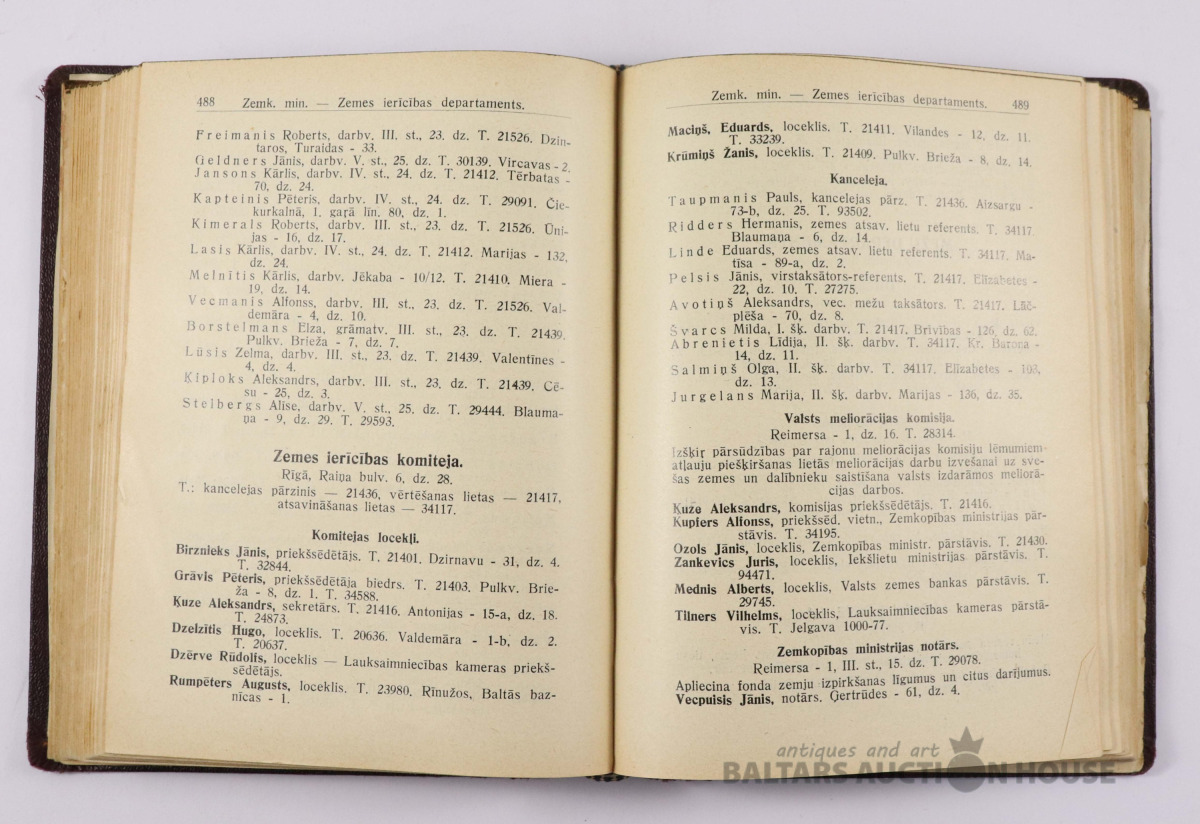 488 Zemk. min. — Zemes ierīcības departaments.
Freimanis Roberts, darbv. III. st., 23. dz. T. 21526. Dzin-
taros, Turaidas - 33.
Geldners Jānis, darbv. V. st., 25. dz. T. 30139. Vircavas - 2.
Jansons Kārlis, darbv. IV. st., 24. dz. T. 21412. Tērbatas -
70, dz. 24.
Kapteinis Pēteris, darbv. IV. st., 24. dz. T. 29091. Čie-
kurkalnā, I. gaŗā līn. 80, dz. 1.
Ķimerals Roberts, darbv. III. st., 23. dz. T. 21526. Ūni-
jas - 16, dz. 17.
Lasis Kārlis, darbv. IV. st., 24. dz. T. 21412. Marijas - 132,
dz. 24.
Melnītis Kārlis, darbv. Jēkaba - 10/12. T. 21410. Miera -
19, dz. 14.
Vecmanis Alfonss, darbv. III. st., 23. dz. T. 21526. Val-
demāra - 4, dz. 10.
Borstelmans Elza, grāmatv. III. st., 23. dz. T. 21439.
Pulkv. Brieža - 7, dz. 7.
Lūsis Zelma, darbv. III. st., 23. dz. T. 21439. Valentīnes -
4, dz. 4.
Ķiploks Aleksandrs, darbv. III. st., 23. dz. T. 21439. Cē-
su - 25, dz. 3.
Stelbergs Alise, darbv. V. st., 25. dz. T. 29444. Blauma-
ņa - 9, dz. 29. T. 29593.
Zemes ierīcības komiteja.
Rīgā, Raiņa bulv. 6, dz. 28.
T.: kancelejas pārzinis — 21436, vērtēšanas lietas — 21417,
atsavināšanas lietas — 34117.
Komitejas locekļi.
Birznieks Jānis, priekšsēdētājs. T. 21401. Dzirnavu - 31, dz. 4.
T. 32844.
Grāvis Pēteris, priekšsēdētāja biedrs. T. 21403. Pulkv. Brie-
ža - 8, dz. 1. T. 34588.
Ķuze Aleksandrs, sekretārs. T. 21416. Antonijas - 15-a, dz. 18.
T. 24873.
Dzelzītis Hugo, loceklis. T. 20636. Valdemāra - 1-b, dz. 2.
T. 20637.
Dzērve Rūdolfs, loceklis — Lauksaimniecības kameras priekš-
sēdētājs.
Rumpēters Augusts, loceklis. T. 23980. Rīnužos, Baltās baz-
nīcas - 1.
Zemk. min. — Zemes ierīcības departaments. 489
Maciņš, Eduards, loceklis. T. 21411. Vilandes - 12, dz. 11.
T. 33239.
Krūmiņš Žanis, loceklis. T. 21409. Pulkv. Brieža - 8, dz. 14.
Kanceleja.
Taupmanis Pauls, kancelejas pārz. T. 21436. Aizsargu -
73-b, dz. 25. T. 93502.
Ridders Hermanis, zemes atsav. lietu referents. T. 34117
Blaumaņa - 6, dz. 14.
Linde Eduards, zemes atsav. lietu referents. T. 34117. Ma-
tīsa - 89-a, dz. 2.
Pelsis Jānis, virstaksātors-referents. T. 21417. Elizabetes -
22, dz. 10. T. 27275.
Avotiņš Aleksandrs, vec. mežu taksātors. T. 21417. Lāč-
plēša - 70, dz. 8.
Švarcs Milda, I. šķ. darbv. T. 21417. Brīvības - 126, dz. 62.
Abrenietis Līdija, II. šķ. darbv. T. 34117. Kr. Barona -
14, dz. 11.
Salmiņš Olga, II. šķ. darbv. T. 34117. Elizabetes - 103,
dz. 13.
Jurgelans Marija, II. šķ. darbv. Marijas - 136, dz. 35.
Valsts meliorācijas komisija.
Reimersa - 1, dz. 16. T. 28314.
Izšķiŗ pārsūdzības par rajonu meliorācijas komisiju lēmumiem
atļauju piešķiršanas lietās meliorācijas darbu izvešanai uz sve-
šas zemes un dalībnieku saistīšana valsts izdarāmos meliorā-
cijas darbos.
Ķuze Aleksandrs, komisijas priekšsēdētājs. T. 21416.
Kupfers Alfonss, priekšsēd. vietn., Zemkopības ministrijas pār-
stāvis. T. 34195.
Ozols Jānis, loceklis, Zemkopības ministr. pārstāvis. T. 21430.
Zankevics Juris, loceklis, Iekšlietu ministrijas pārstāvis. T.
94471.
Mednis Alberts, loceklis, Valsts zemes bankas pārstāvis. T.
29745.
Tilners Vilhelms, loceklis, Lauksaimniecības kameras pārstā-
vis. T. Jelgava 1000-77.
Zemkopības ministrijas notārs.
Reimersa - 1, III. st., 15. dz. T. 29078.
Apliecina fonda zemju izpirkšanas līgumus un citus darījumus.
Vecpuisis Jānis, notārs. Ģertrūdes - 61, dz. 4.
antiques and art
BALTARS AUCTION HOUSE